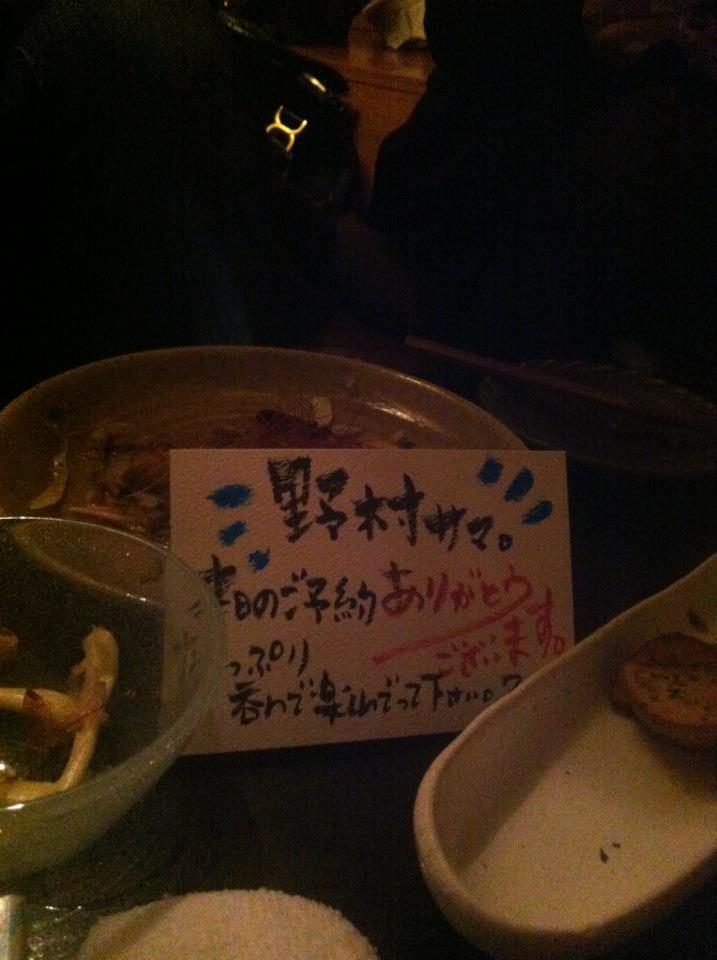 野村サマ。
本日のご予約ありがとうございます。
っぷり
呑んで楽しんでって下さい。